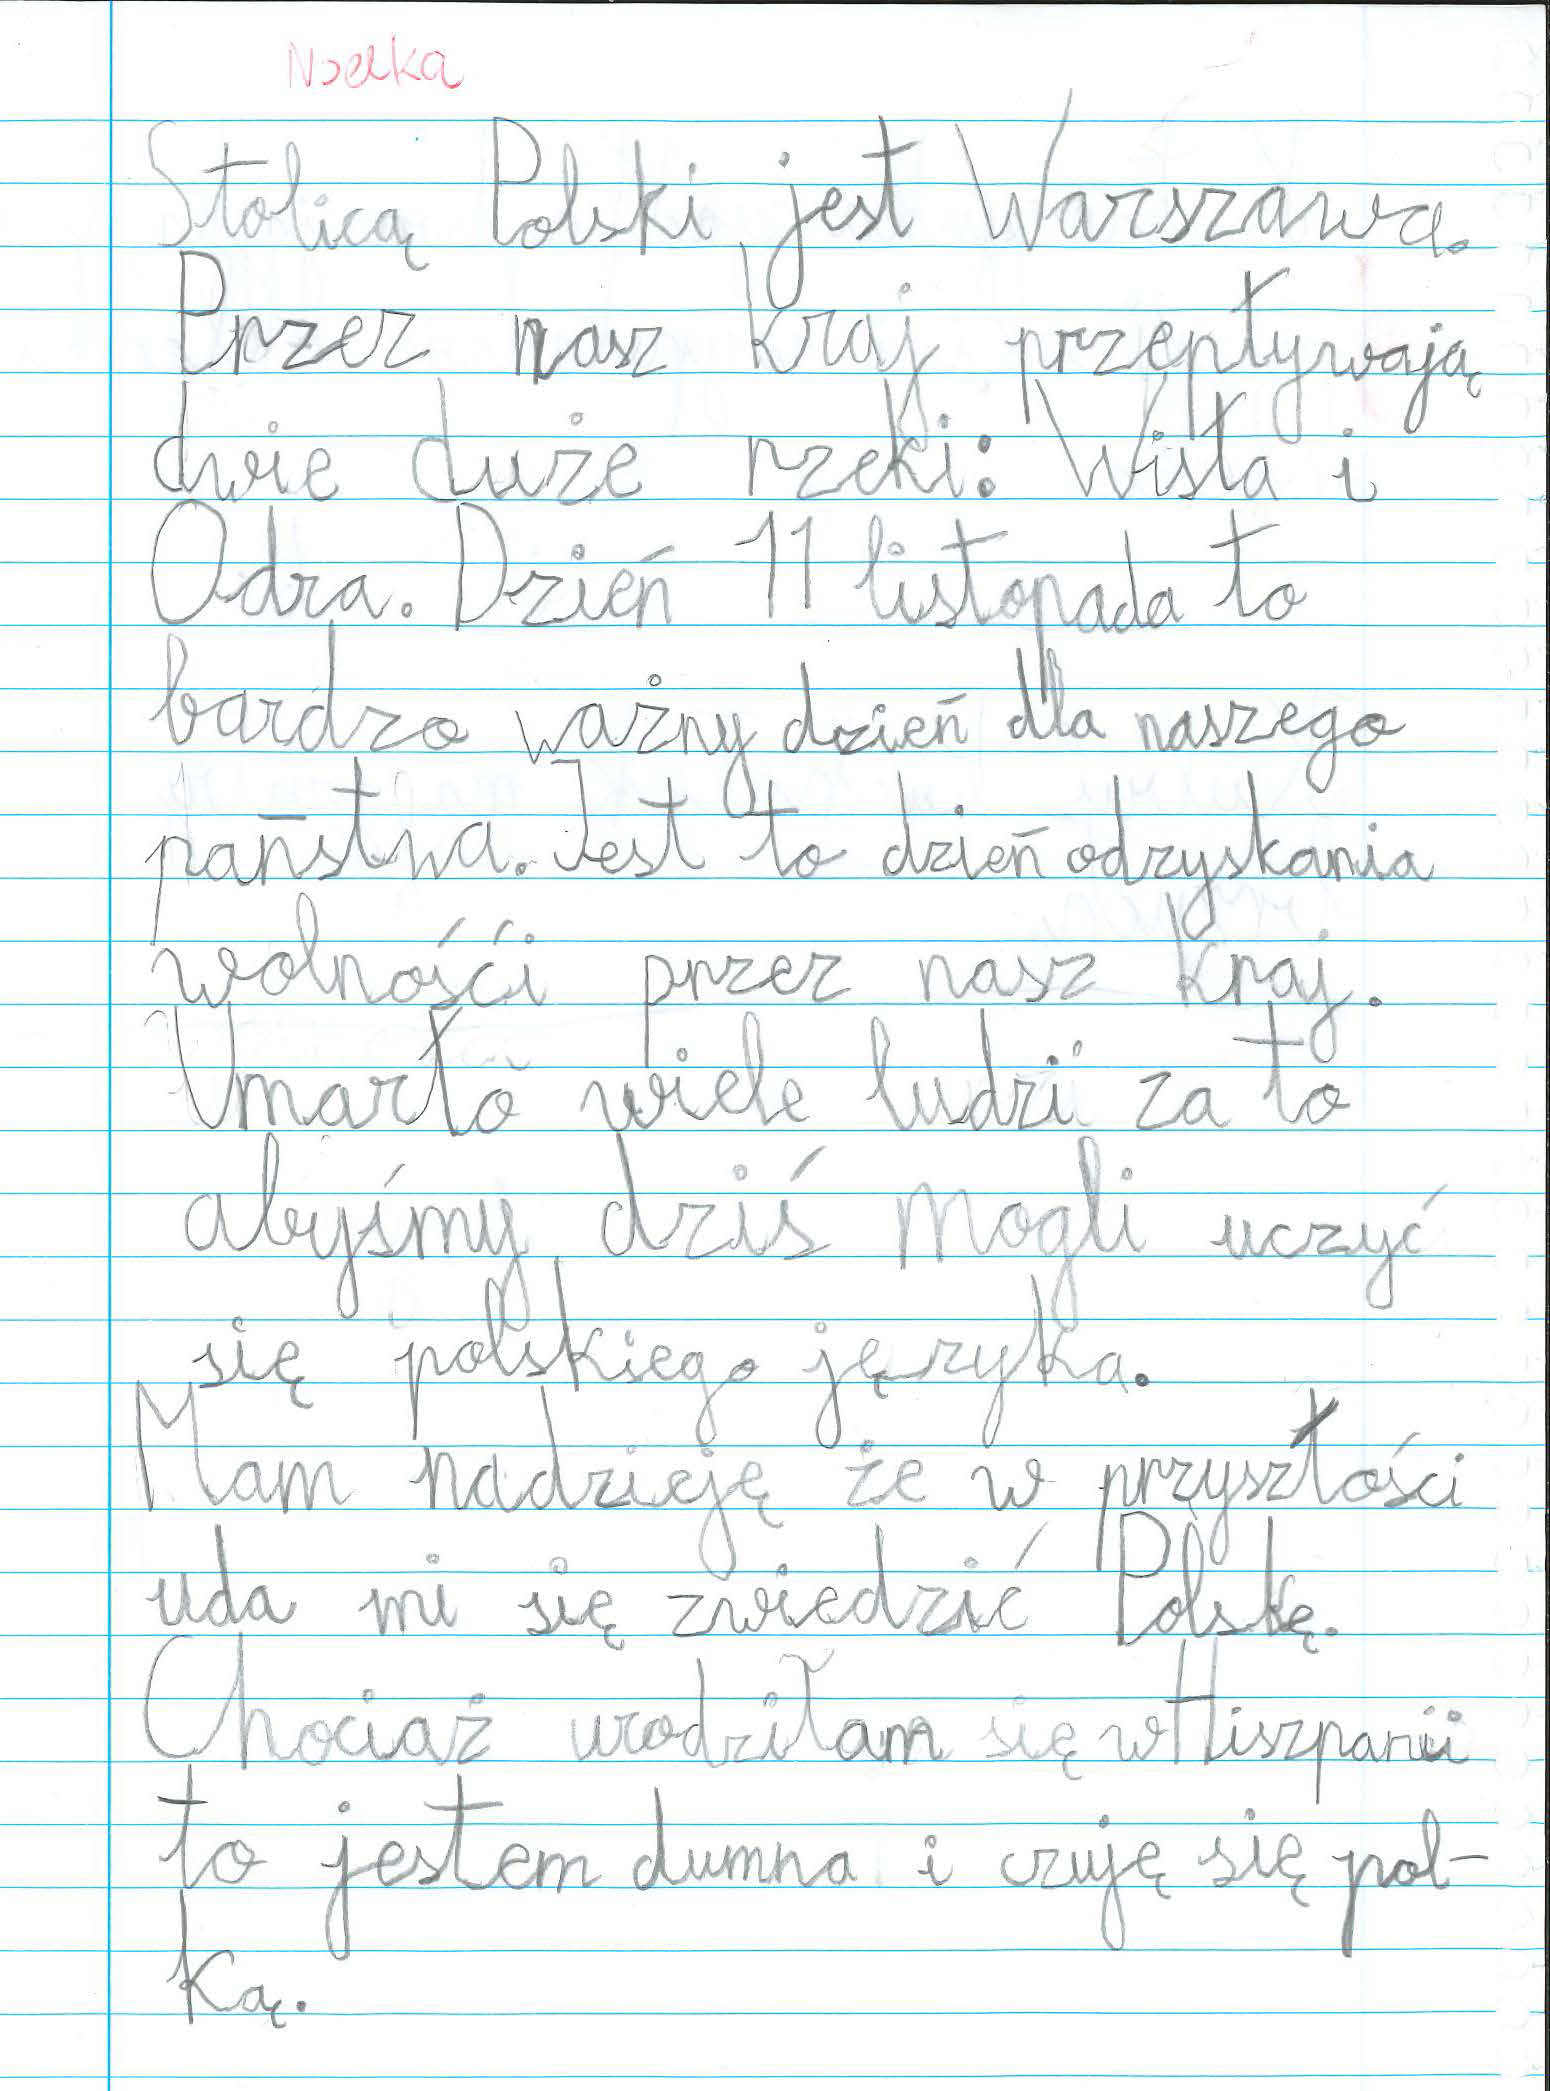 Noelka
Stolicą Polski jest Warszawa.
Przez nasz kraj przepływają
dwie duże rzeki: Wisła i
Odra. Dzień 11 listopada to
bardzo ważny dzień dla naszego
państwa. Jest to dzień odzyskania
wolnośći przez nasz kraj.
Umarło wiele ludzi za to
abyśmy dziś mogli uczyć
się polskiego języka.
Mam nadzieję że w przyszłości
uda mi się zwiedzić Polskę.
Chociaż urodziłam się w Hiszpanii
to jestem dumna i czuję się pol-
ką.